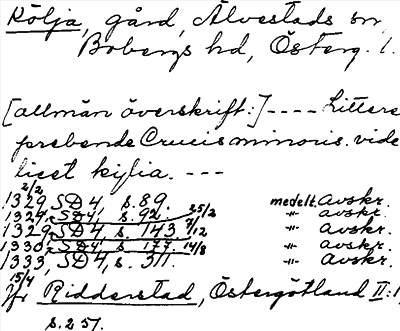 Kölja, gård, Älvestads sn,
Bobergs hd, Österg. l.
[allmän överskrift:] ---- Littere
prebende Crucis minoris. vide
licet kiflia. ---
2/2
1329, SD4, s. 89. medelt. Avskr.
1329, SD4, s. 92. 25/2 -"- avskr.
1329, SD4, s. 143. 7/12 -"- Avskr.
1330, SD4, s. 177. 14/8 -"- Avskr.
1333, SD4, s. 311. -"- Avskr.
15/4
Jfr Ridderstad, Östergötland II:1,
s. 251.